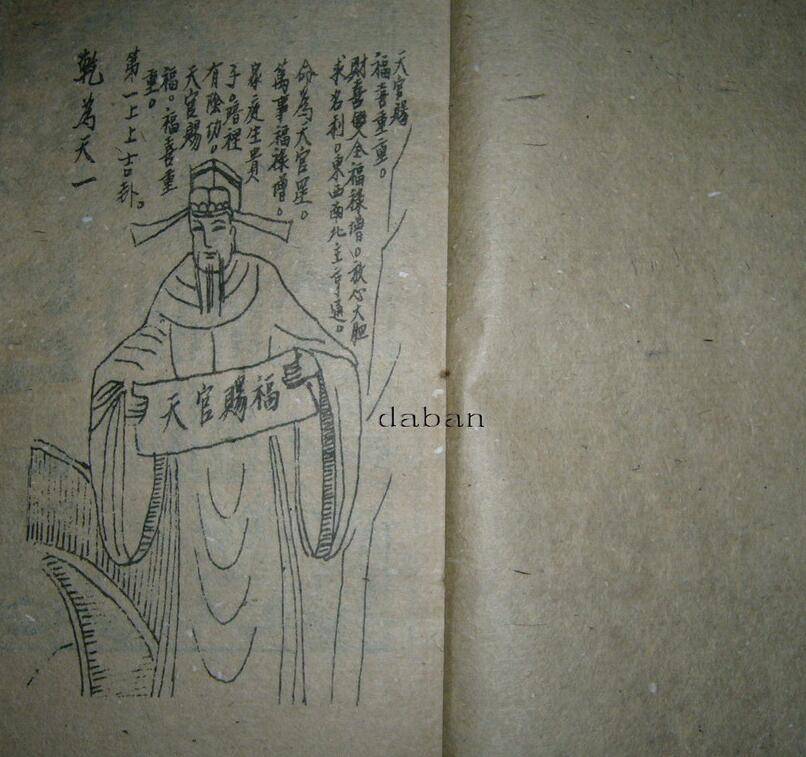 天官賜
福喜重重。
財喜雙全福祿增。放心大胆
求名利。東西南北主亨通。
命為天官星。
萬事福祿增。
家庭生貴
子。暗裡
有陰功。
天官賜
福。福喜重
重。
第一上上吉卦。
乾為天一
天官賜福
daban